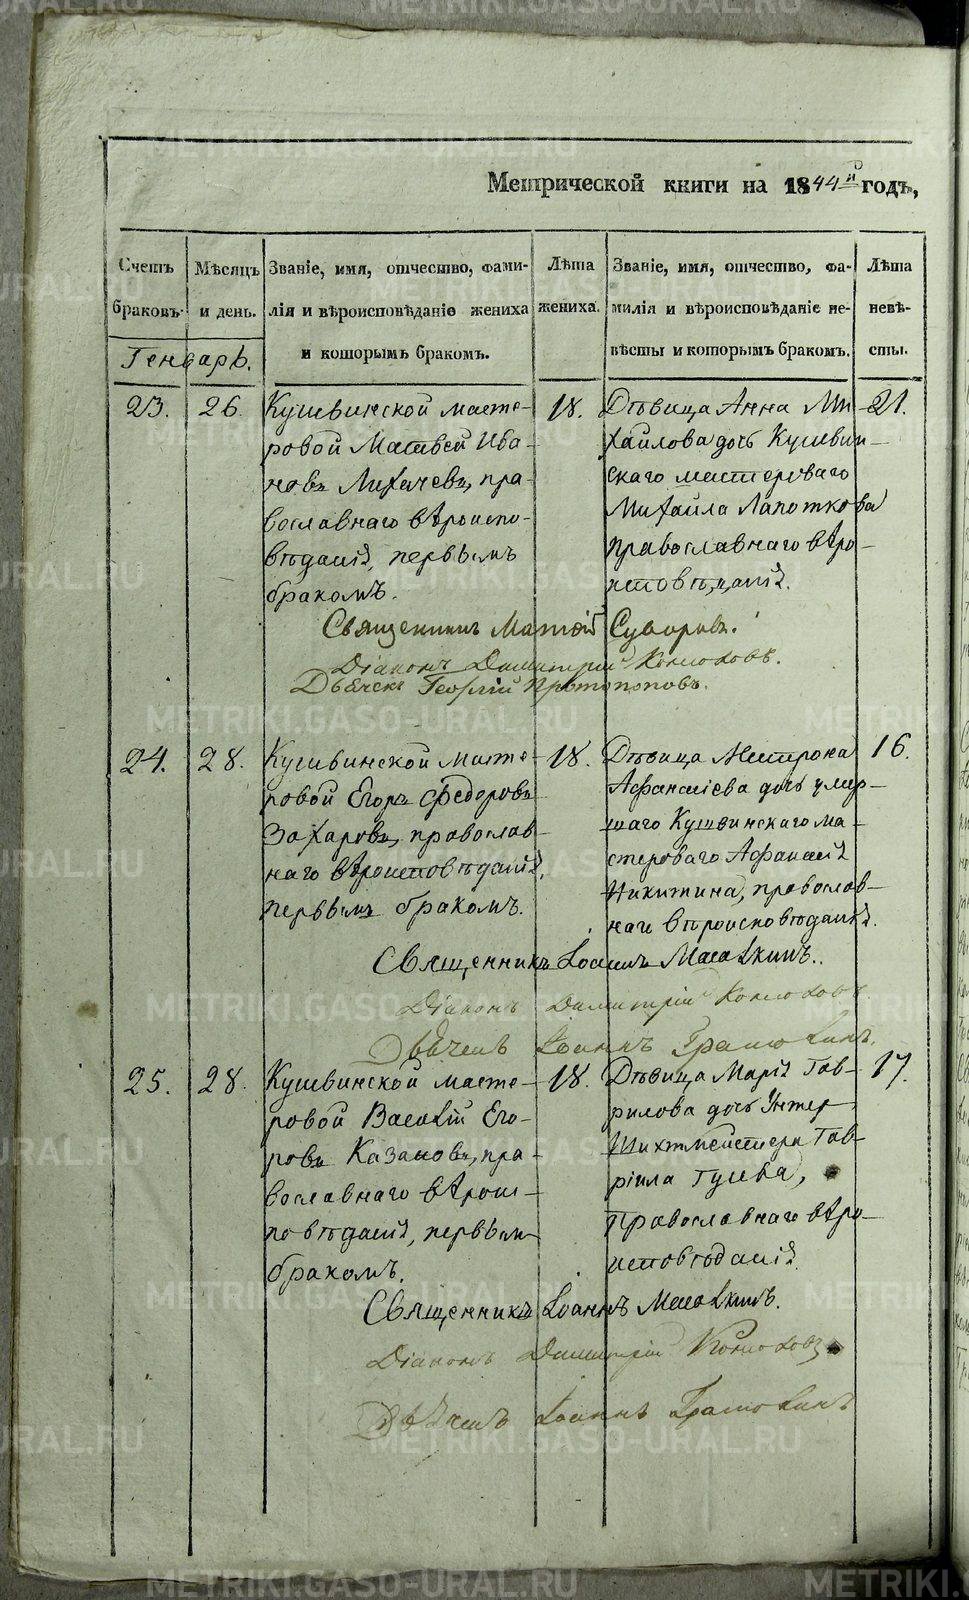 Метрической книги на 1844й годъ,
Счетъ браковъ.
Мѣсяцъ и день.
Званіе, имя, отчество, фами-
лія и вѣроисповѣданіе жениха
и которымъ бракомъ.
Лѣта жениха.
Званіе, имя, отчество, фа-
милія и вѣроисповѣданіе не-
вѣсты и которымъ бракомъ.
Лѣта невѣ-
сты.
Генварь.
23.
26.
Кушвинской масте-
ровой Матвей Ива-
новъ Лихачевъ, пра-
вославнаго вѣроиспо-
вѣданія, первымъ
бракомъ.
18.
Дѣвица Анна Ми-
хайлова дочь Кушвин-
скаго мастероваго
Михайла Лапоткова
православнаго вѣро-
исповѣданія.
21.
Священникъ Матѳій Суворовъ.
Діаконъ Димитрій Конюховъ.
Дьячекъ Георгій Протопоповъ.
24.
28.
Кушвинской масте-
ровой Егоръ Федоровъ
Захаровъ, православ-
наго вѣроисповѣданія,
первымъ бракомъ.
18.
Дѣвица Матрона
Афанасіева дочь умер-
шаго Кушвинскаго ма-
стероваго Афанасія
Никитина, православ-
наго вѣроисповѣданія.
16.
Священникъ Іоаннъ
Діаконъ Димитрій Конюховъ
Дьячекъ Іоаннъ
25.
28.
Кушвинской масте-
ровой Василій Его-
ровъ Казаковъ, пра-
вославнаго вѣроис-
повѣданія, первымъ
бракомъ.
18.
Дѣвица Марія Гав-
рилова дочь Унтер
Шихтмейстера Гав-
ріила Гусева,
Православнаго вѣро-
исповѣданія.
17.
Священникъ Іоаннъ
Діаконъ Димитрій Конюховъ
Дьячекъ Іоаннъ
METRIKI.GASO-URAL.RU